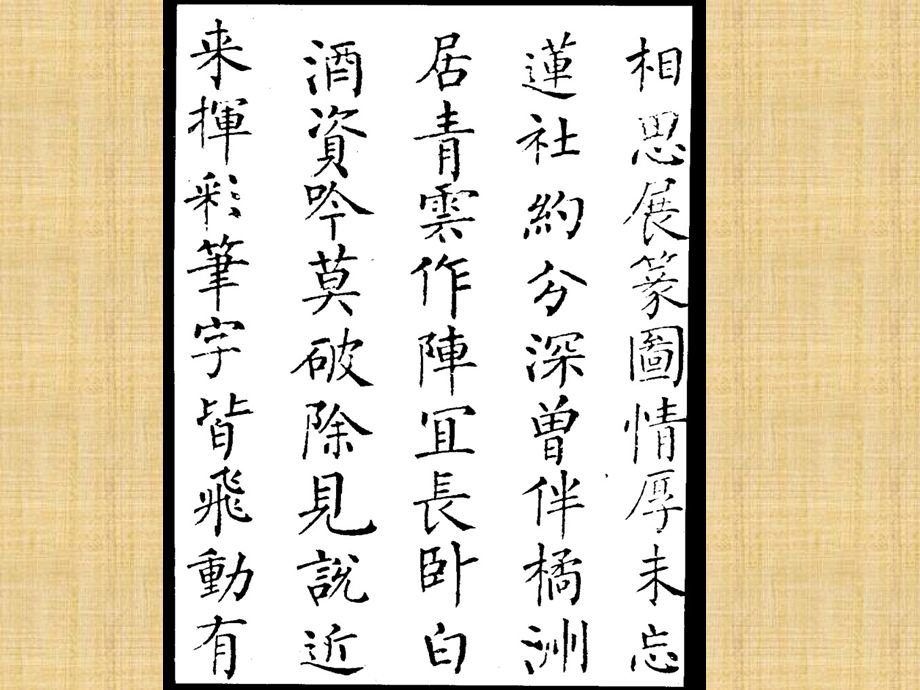 相思展篆圖情厚未忘
蓮社約分深曾伴橘洲
居青雲作陣冝長卧白
酒資吟莫破除見説近
来揮彩筆字皆飛動有